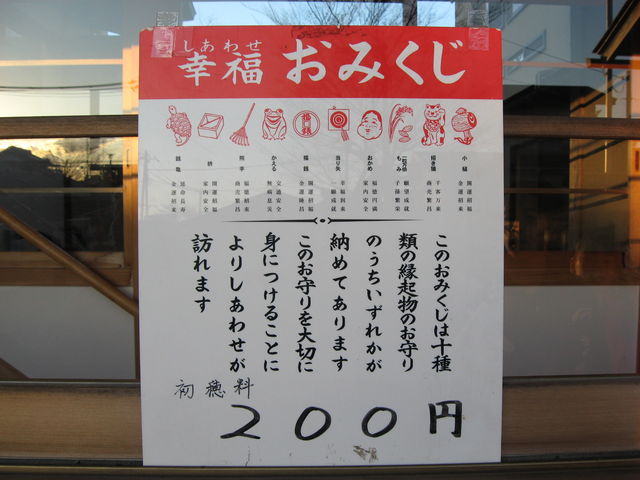 しあわせ
幸福 おみくじ
小槌
開運招福
金運招来
招き猫
千客万来
商売繁昌
おかめ
福徳円満
家内安全
当り矢
幸福到来
福銭
開運招福
金運隆昌
かえる
交通安全
無病息災
熊手
福徳招来
商売繁昌
枡
開運招福
家内安全
銭亀
延命長寿
金運招来
このおみくじは十種
類の縁起物のお守り
のうちいずれかが
納めてあります
このお守りを大切に
身につけることに
よりしあわせが
訪れます
初穂料
200円